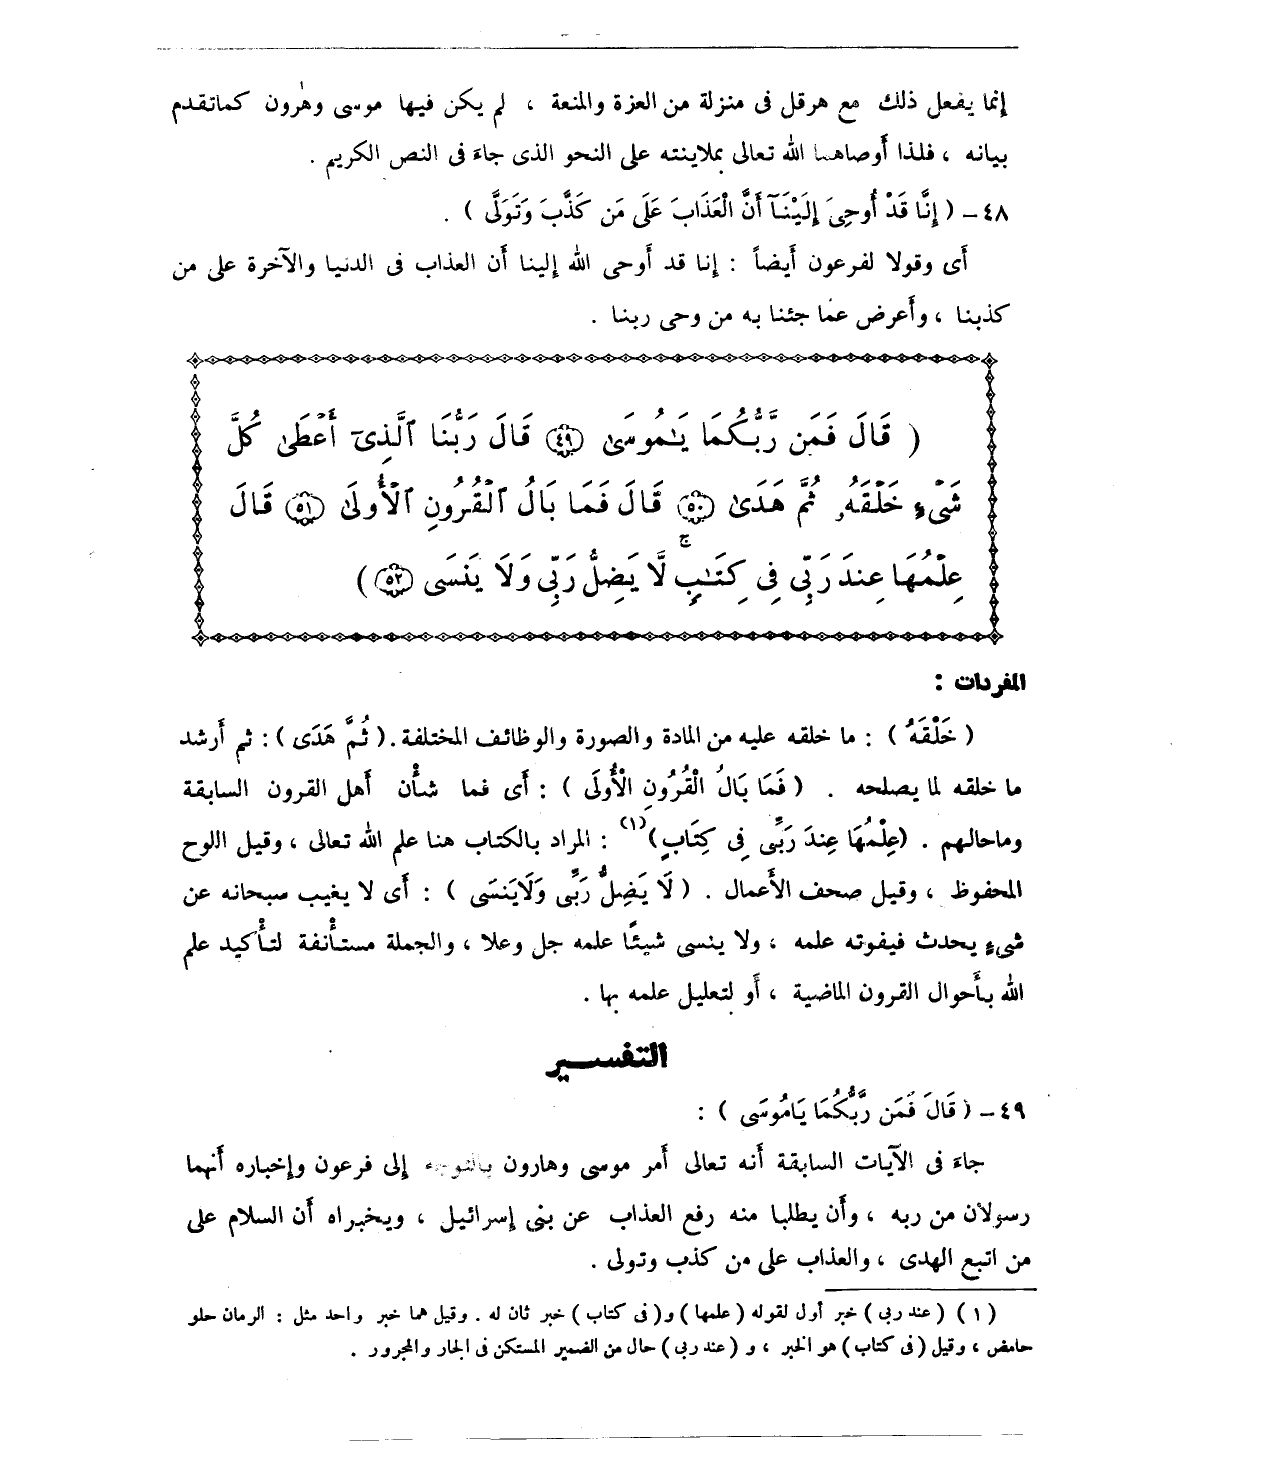 إنما يفعل ذلك مع هرقل فى منزلة من العزة والمنعة ، لم يكن فيها موسى وهٰرون كماتقدم
بيانه ، فلذا أوصاهما الله تعالى بملاينته على النحو الذى جاءَ فى النص الكريم .
٤٨ – ( إِنَّا قَدْ أُوحِىَ إِلَيْنَآ أَنَّ الْعَذَابَ عَلَى مَن كَذَّبَ وَتَوَلَّى ) .
أى وقولا لفرعون أيضاً : إنا قد أوحى الله إلينا أن العذاب فى الدنيا والآخرة على من
كذبنا ، وأعرض عما جئنا به من وحى ربنا .
( قَالَ فَمَن رَّبُّكُمَا يَٰمُوسَىٰ ﴿٤٩﴾ قَالَ رَبُّنَا ٱلَّذِىٓ أَعْطَىٰ كُلَّ
شَىْءٍ خَلْقَهُۥ ثُمَّ هَدَىٰ ﴿٥٠﴾ قَالَ فَمَا بَالُ ٱلْقُرُونِ ٱلْأُولَىٰ ﴿٥١﴾ قَالَ
عِلْمُهَا عِندَ رَبِّى فِى كِتَٰبٍۚ لَّا يَضِلُّ رَبِّى وَلَا يَنسَى ﴿٥٢﴾ )
المفردات :
( خَلْقَهُ ) : ما خلقه عليه من المادة والصورة والوظائف المختلفة . ( ثُمَّ هَدَى ) : ثم أرشد
ما خلقه لما يصلحه . ( فَمَا بَالُ الْقُرُونِ الْأُولَى ) : أى فما شأْن أهل القرون السابقة
وماحالهم . (عِلْمُهَا عِندَ رَبِّى فِى كِتَابٍ)(١) : المراد بالكتاب هنا علم الله تعالى ، وقيل اللوح
المحفوظ ، وقيل صحف الأعمال . ( لَا يَضِلُّ رَبِّى وَلَايَنسَى ) : أى لا يغيب سبحانه عن
شىءٍ يحدث فيفوته علمه ، ولا ينسى شيئًا علمه جل وعلا ، والجملة مستأْنفة لتأْكيد علم
الله بأحوال القرون الماضية ، أو لتعليل علمه بها .
التفسير
٤٩ – ( قَالَ فَمَن رَّبُّكُمَا يَامُوسَى ) :
جاءَ فى الآيات السابقة أنه تعالى أمر موسى وهارون بالتوجه إلى فرعون وإخباره أنهما
رسولان من ربه ، وأن يطلبا منه رفع العذاب عن بنى إسرائيل ، ويخبراه أن السلام على
من اتبع الهدى ، والعذاب على من كذب وتولى .
( ١ ) ( عند ربى ) خبر أول لقوله ( علمها ) و( فى كتاب ) خبر ثان له . وقيل هما خبر واحد مثل : الرمان حلو
حامض ، وقيل ( فى كتاب ) هو الخبر ، و ( عند ربى ) حال من الضمير المستكن فى الجار والمجرور .